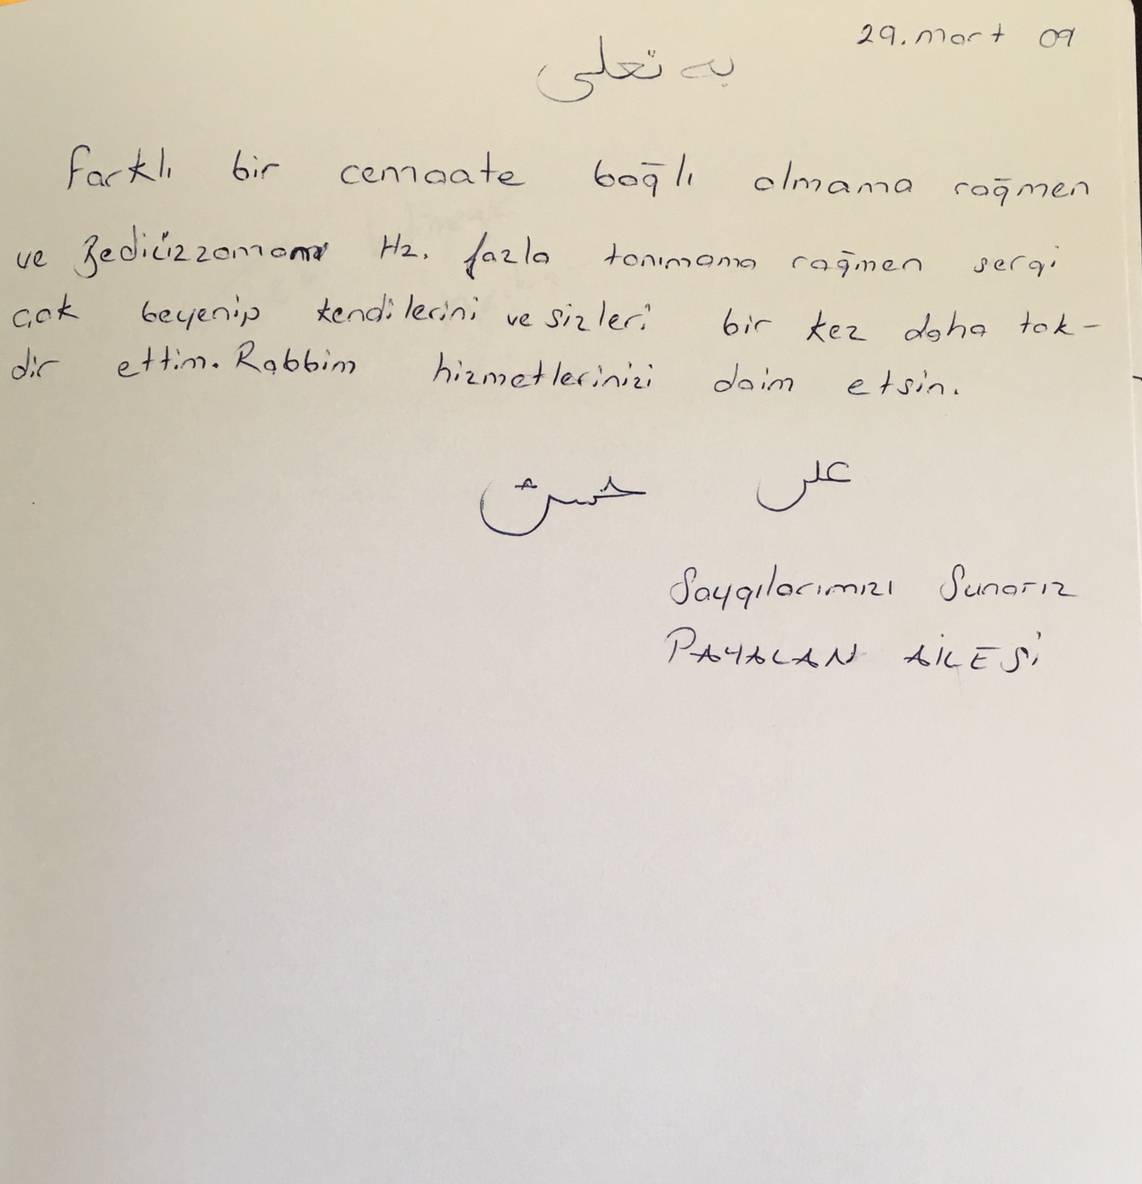 29. Mart 09
به تعلی
Farklı bir cemaate bağlı olmama rağmen
ve Bediüzzamanı Hz. fazla tanımama rağmen sergi
çok beyenip kendilerini ve sizleri bir kez daha tak-
dir ettim. Rabbim hizmetlerinizi daim etsin.
علی
Saygılarımızı Sunarız
PAYALAN AİLESİ